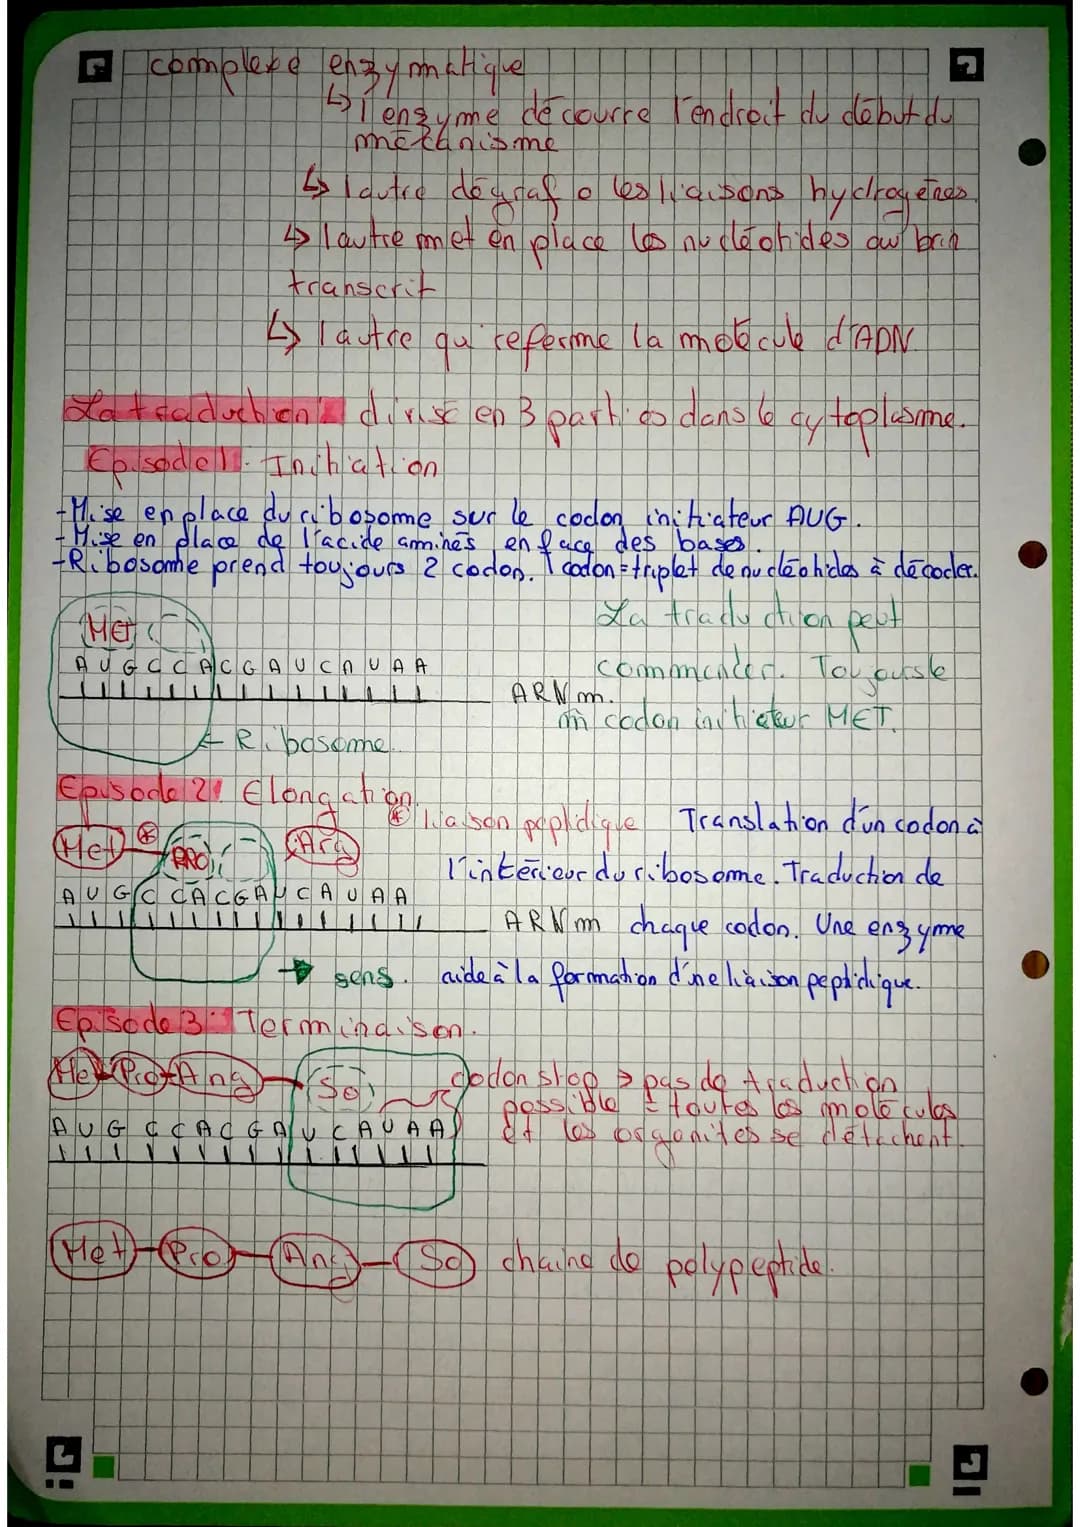 complexe enzymatique
↳ l'enzyme découvre l'endroit du début du
mécanisme
↳ l'autre dégrafe les liaisons hydrogènes
↳ l'autre met en place les nucléotides au brin
transcrit
↳ l'autre qui referme la molécule d'ADN.
La traduction : divisé en 3 parties dans le cytoplasme.
Episode 1 : Initiation
-Mise en place du ribosome sur le codon initiateur AUG.
-Mise en place de l'acide aminés en face des bases.
-Ribosome prend toujours 2 codon. 1 codon = triplet de nucléotides à décoder.
MET
La traduction peut
AUGCCACGAUCAUAA
commencer. Toujours le
ARNm.
m̂ codon initiateur MET.
← Ribosome.
Episode 2 : Elongation.
⊛ liaison peptidique Translation d'un codon à
Met ⊛ PRO Arg
l'intérieur du ribosome. Traduction de
AUGCCACGAUCAUAA
ARNm chaque codon. Une enzyme
→ sens. aide à la formation d'une liaison peptidique.
Episode 3 : Terminaison.
Met Pro Ang So codon stop → pas de traduction
possible = toutes les molécules
AUGCCACGAUCAUAA et les organites se détachent.
Met Pro Ang So chaine de polypeptide.